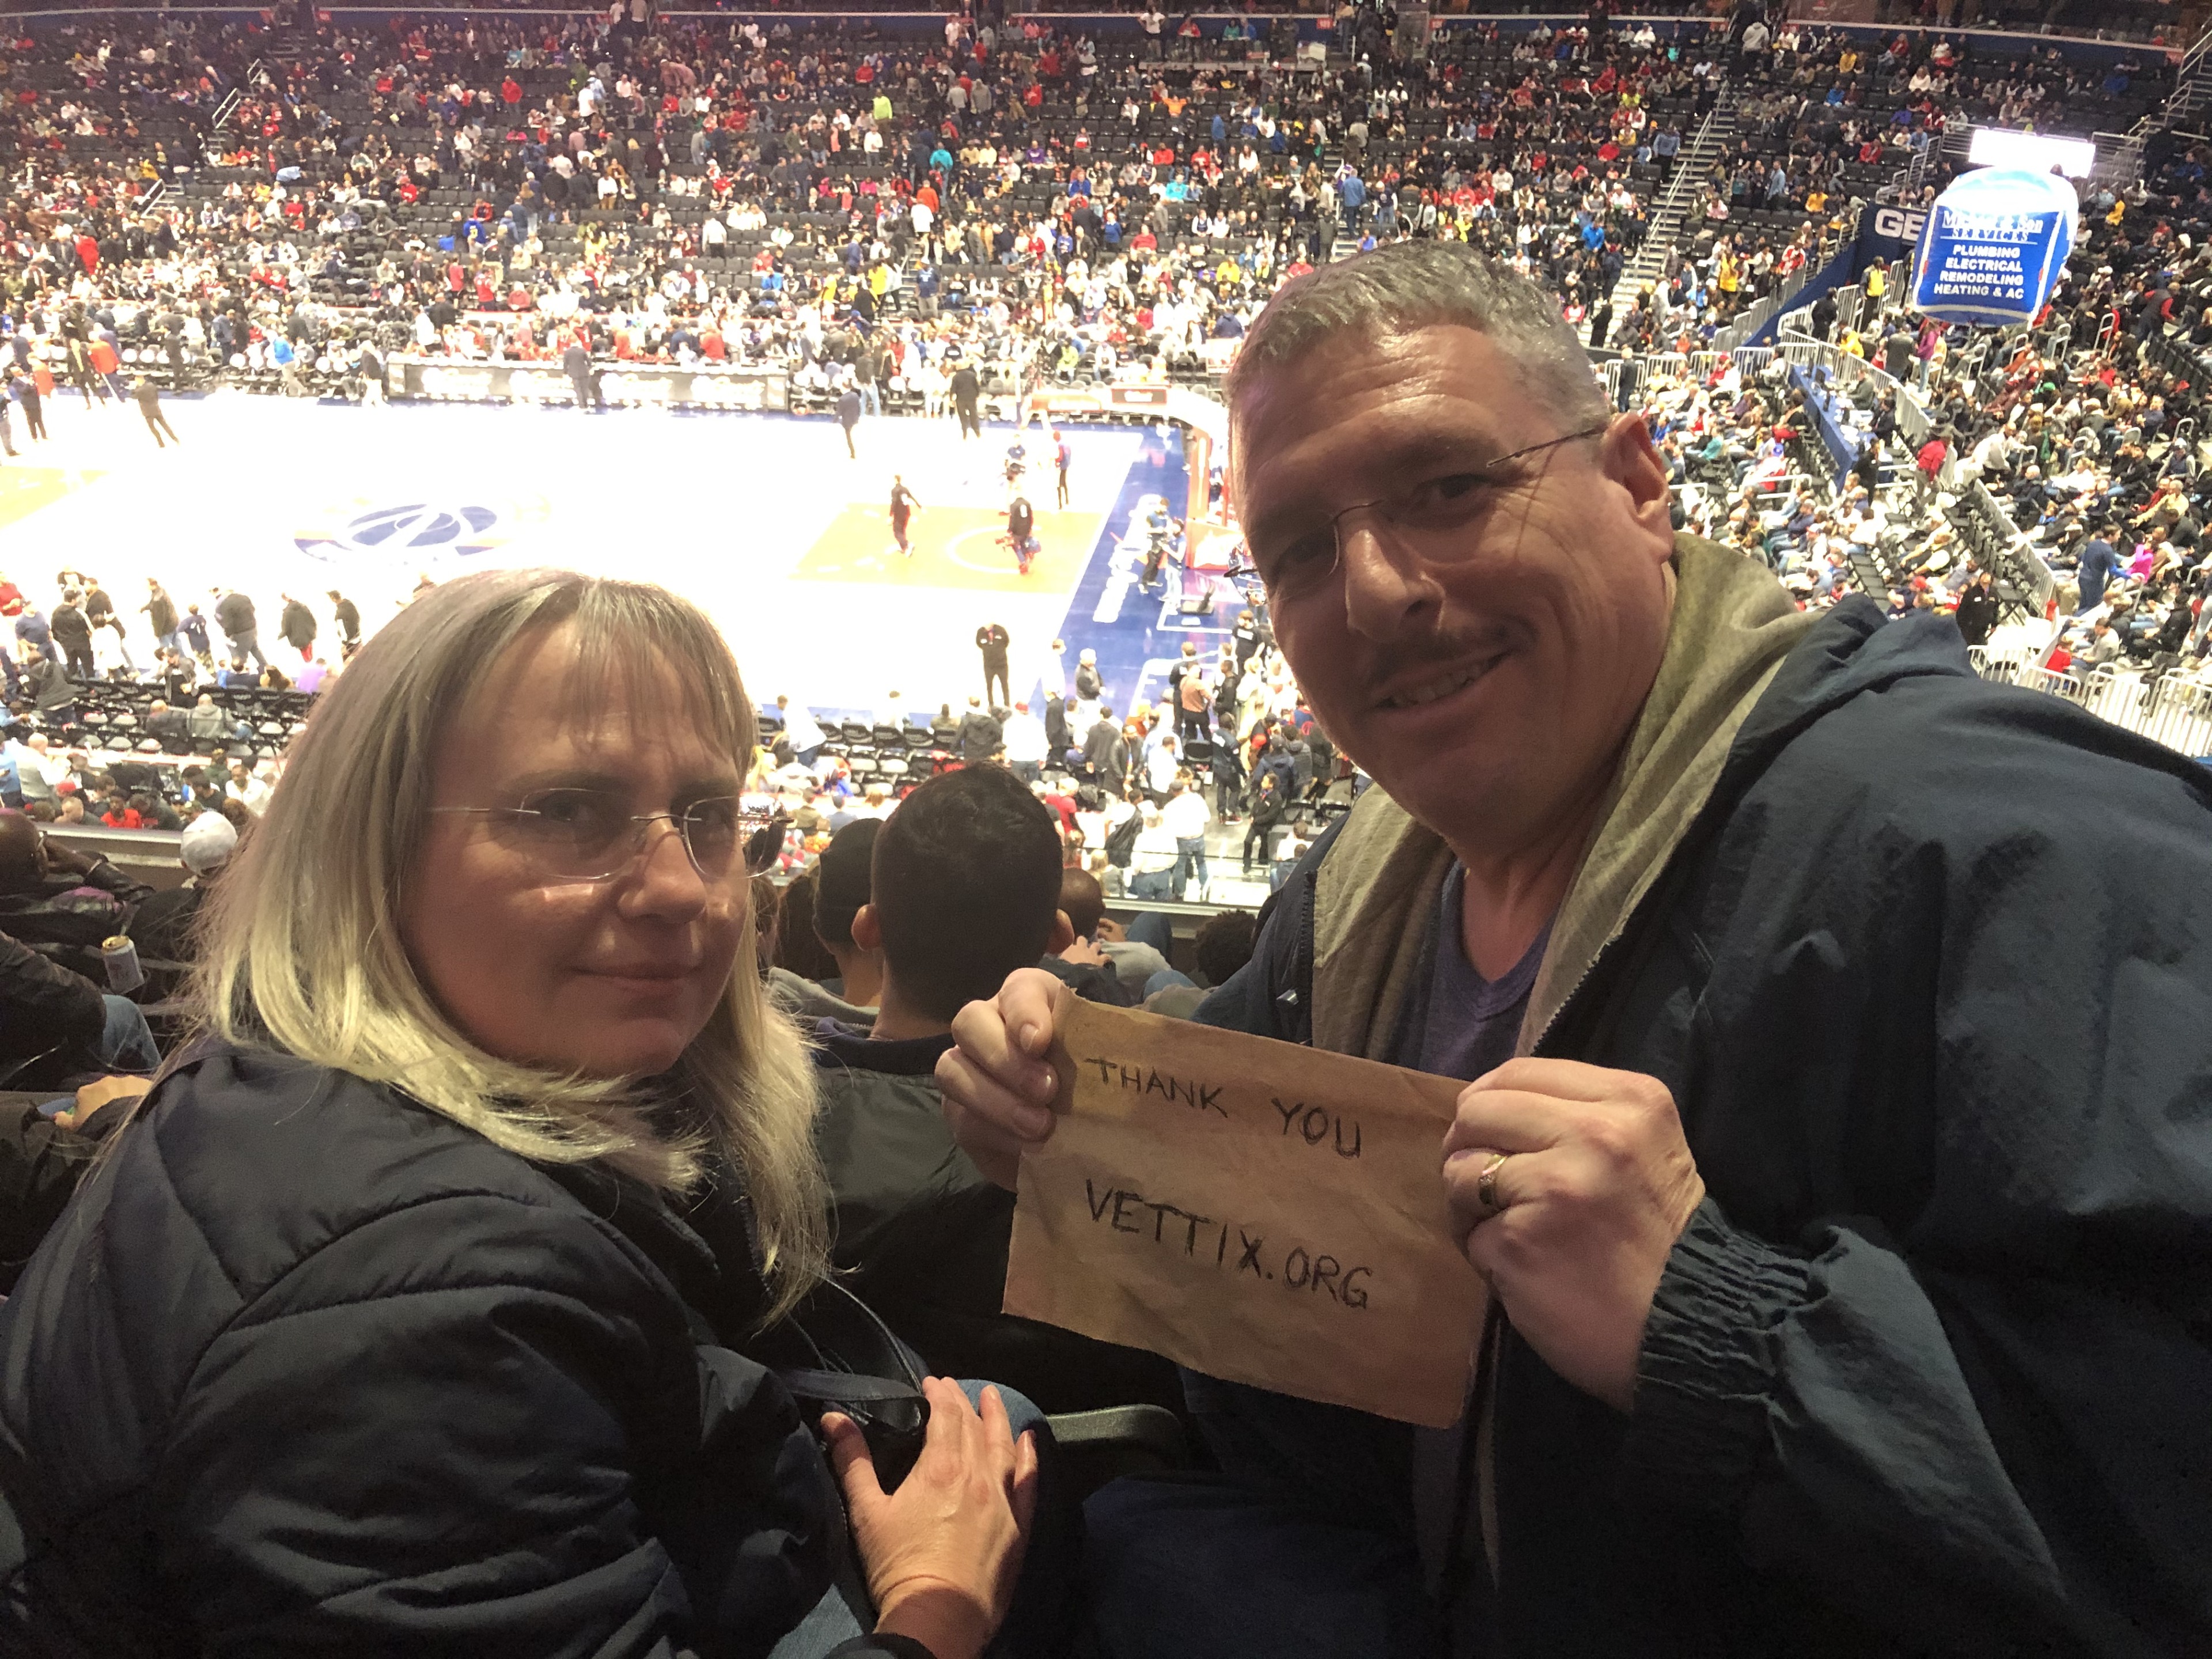 GE
Michael & Son
SERVICES
PLUMBING
ELECTRICAL
REMODELING
HEATING & AC
THANK YOU
VETTIX.ORG